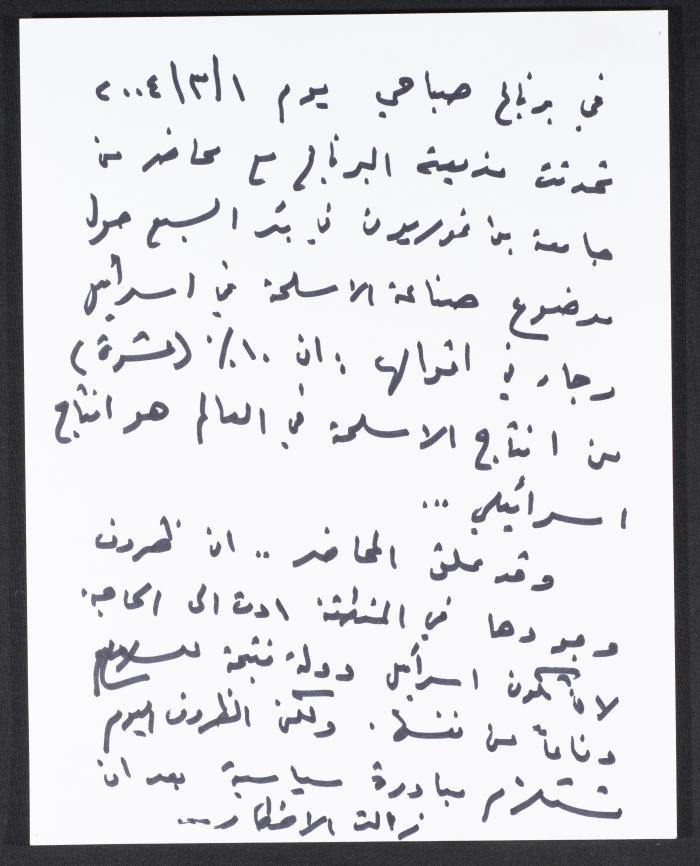 في برنامج صباحي يوم ٢٠٠٤/٣/١
تحدثت مذيعة البرنامج مع محاضر من
جامعة بن غوريون في بئر السبع حول
موضوع صناعة الاسلحة في اسرائيل
وجاء في اقوالها : ان ١٠٪ (عشرة)
من انتاج الاسلحة في العالم هو انتاج
اسرائيلي ...
وقد علق المحاضر .. ان ظروف
وجودها في المنطقة ادت الى الحاجة
لان تكون اسرائيل دولة منتجة للسلاح
دفاعاً عن نفسها . ولكن الظروف اليوم
تستلزم مبادرة سياسية بعد ان
زالت الاخطار ...